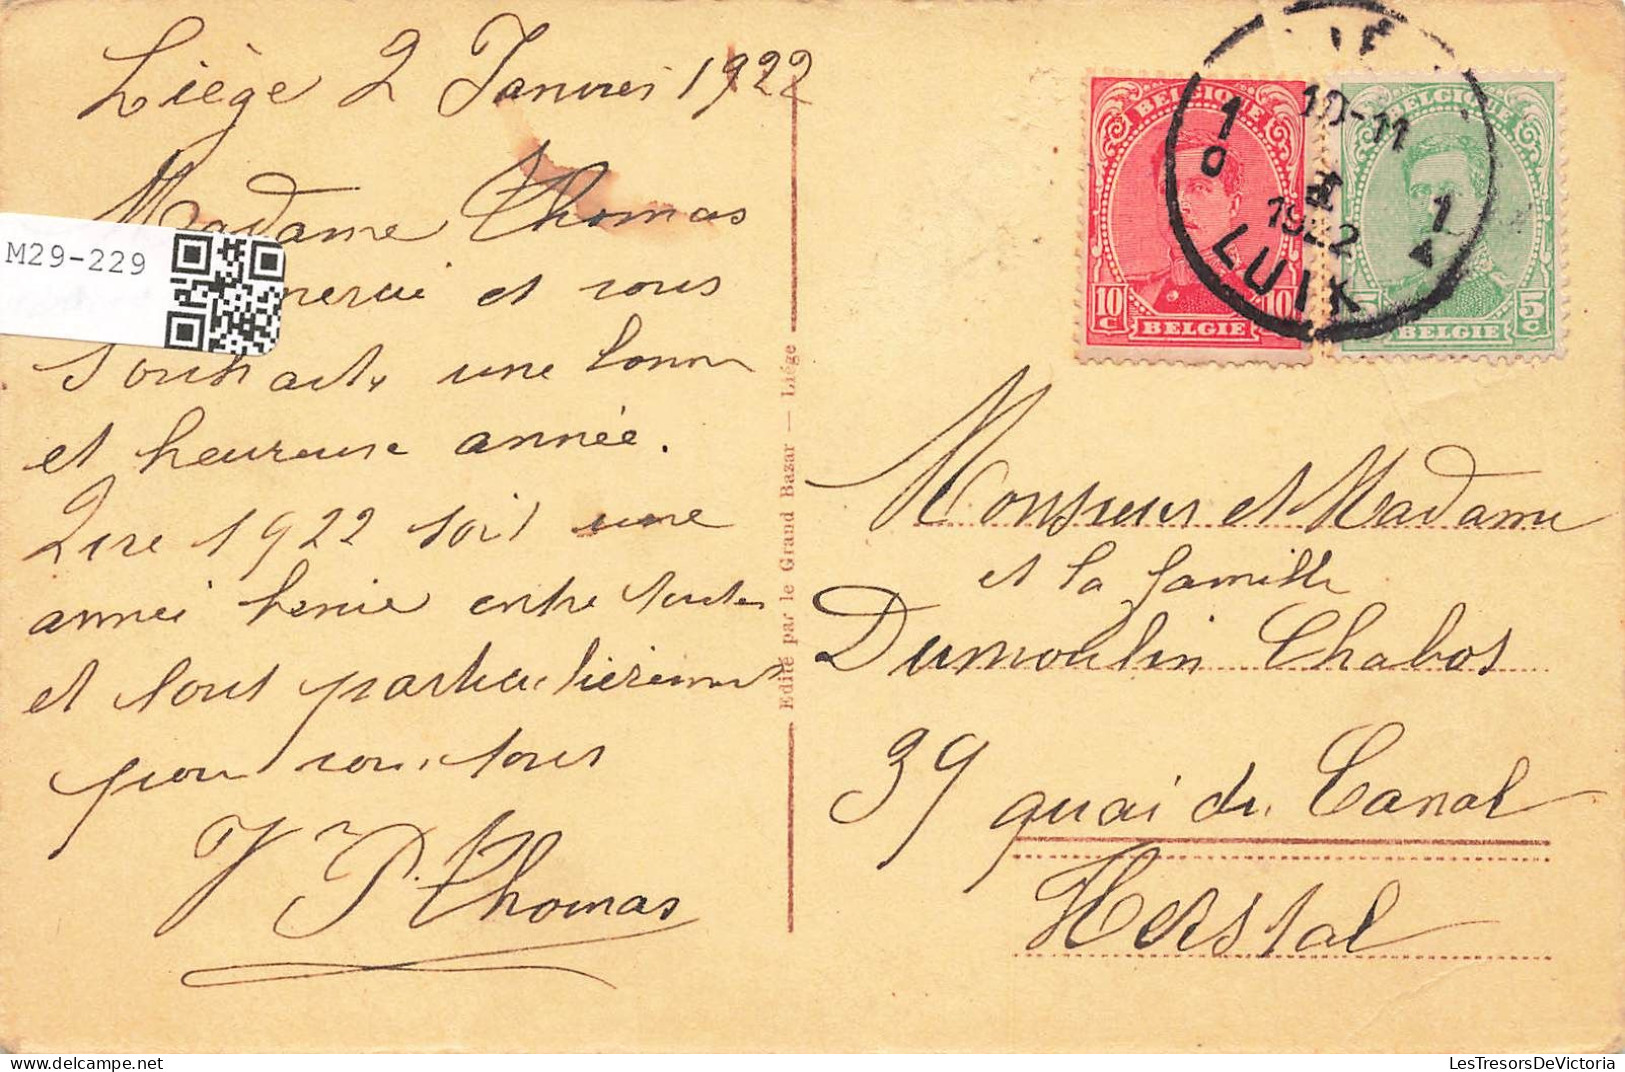 Liège 2 Janvier 1922
Madame Thomas
et vous
Souhaite une bonne
et heureuse année.
Que 1922 soit une
année bénie entre toutes
et tout particulièrement
pour vous tous
V P. Thomas
M29-229
Edité par le Grand Bazar — Liége
BELGIQUE
10c
10c
BELGIE
BELGIQUE
5c
5c
BELGIE
10-11
1
1
1922
LUIK
Monsieur et Madame
et la famille
Dumoulin Chabot
39 quai du Canal
Herstal
LesTresorsDeVictoria